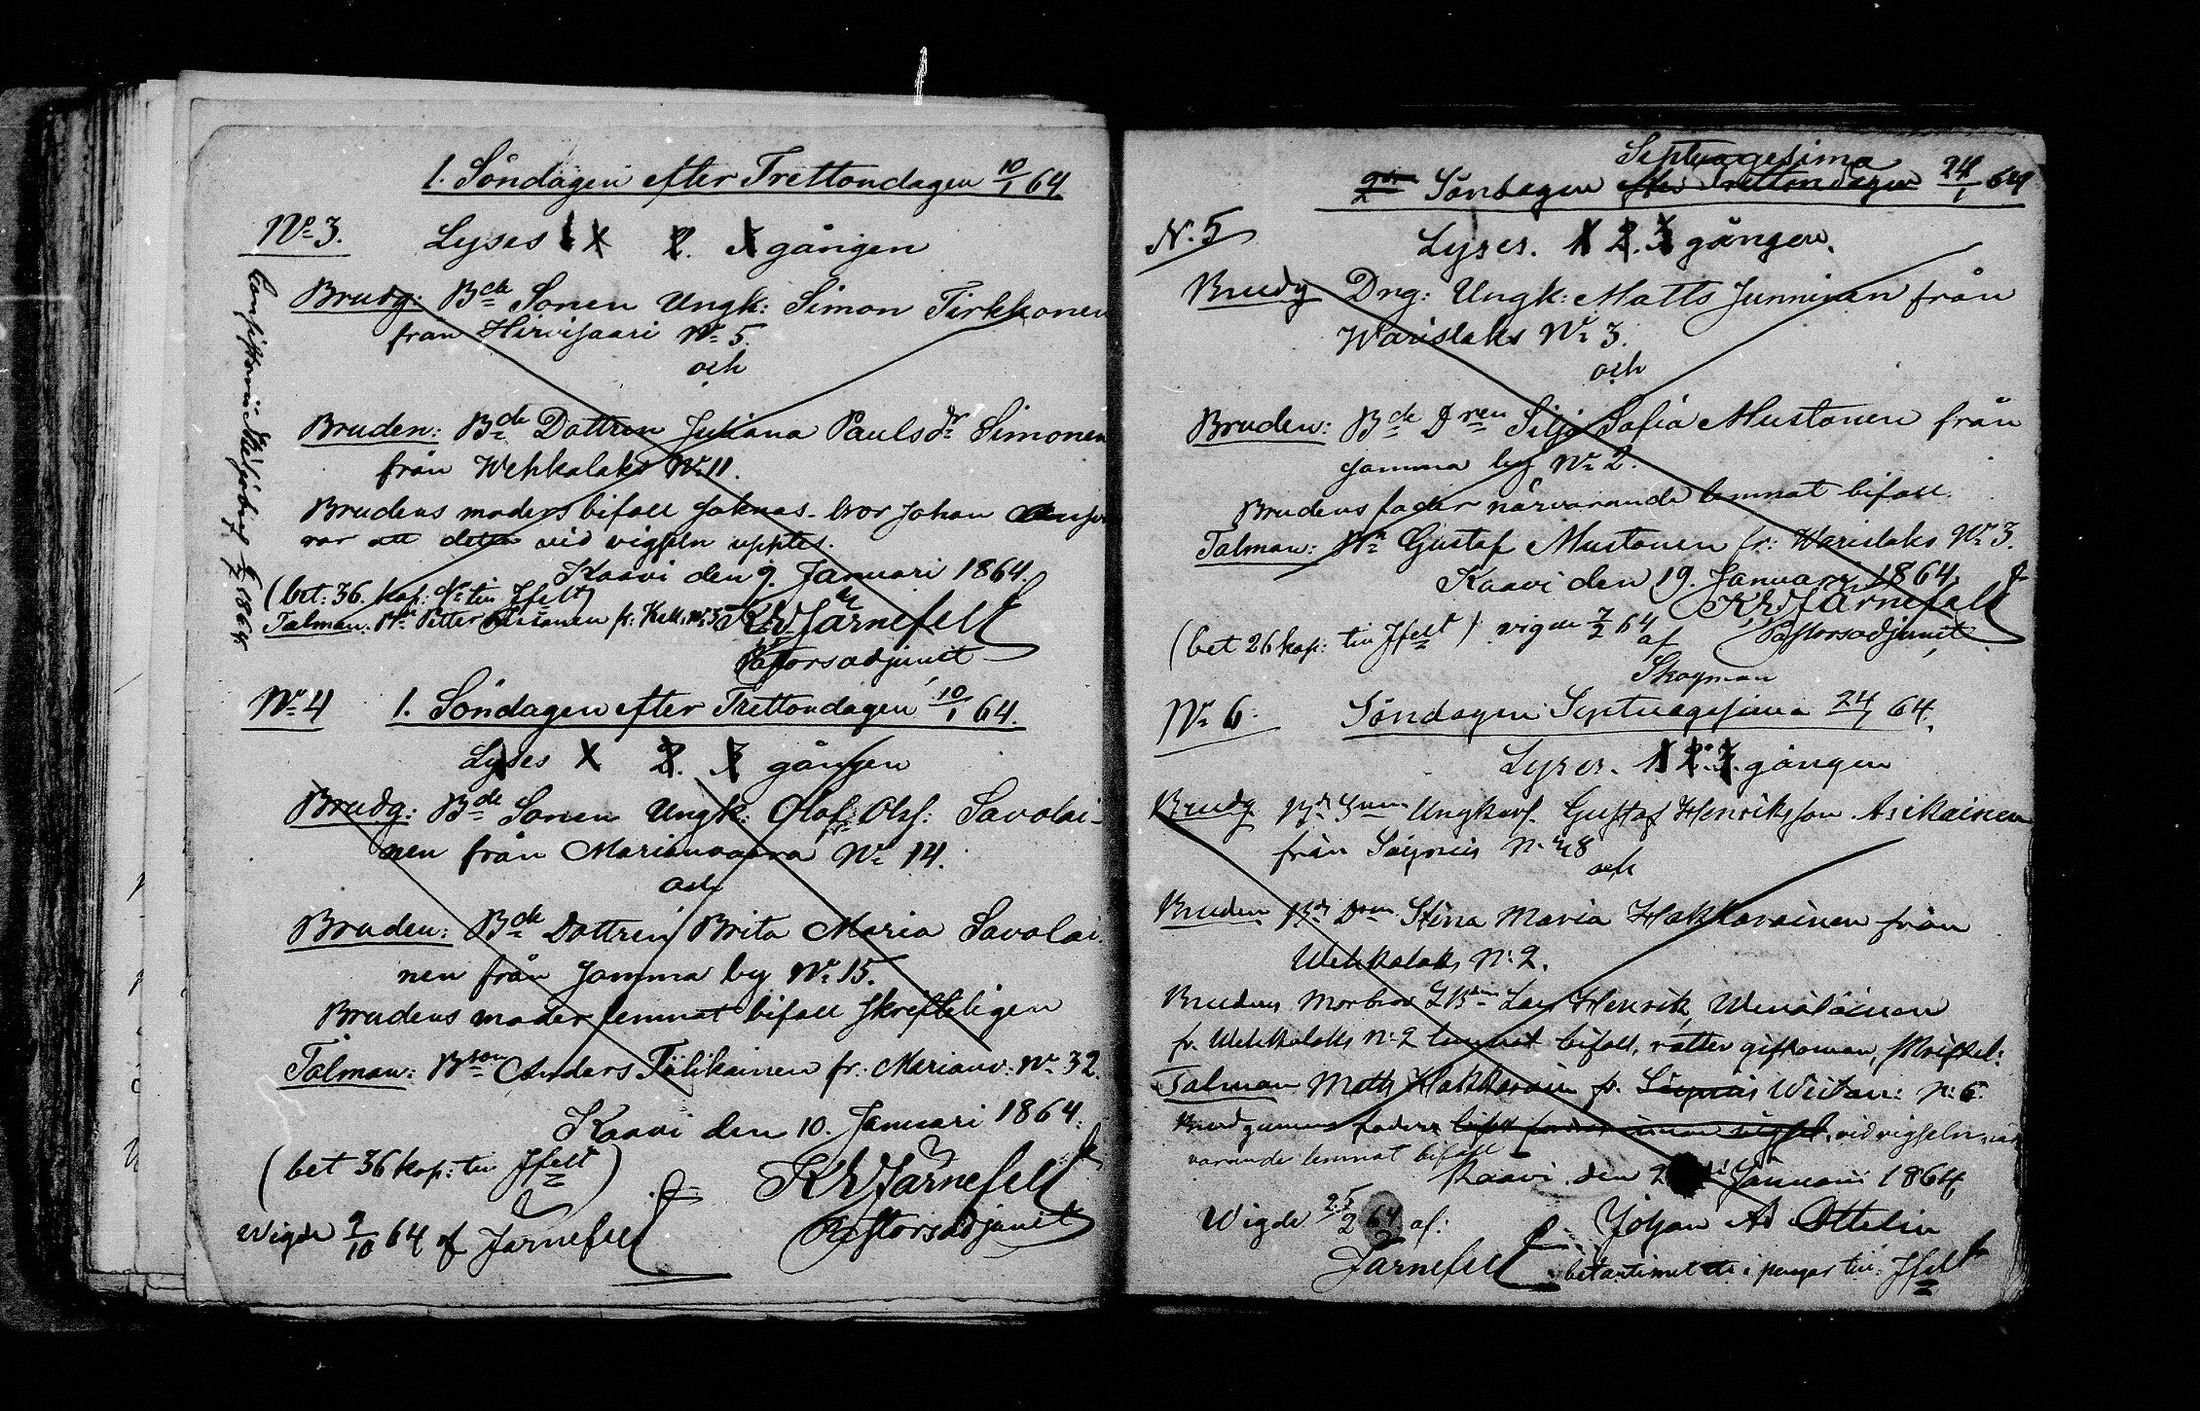 1. Söndagen efter Trettondagen 10/1 64
No 3. Lyses 1 2. 3 gången
Brudg: Bde Sonen Ungk: Simon Tirkkonen
från Hirvisaari No 5.
och
Bruden: Bde Dottren Juliana Paulsdr Simonen
från Wehkalaks No 11.
Brudens moders bifall saknas. bror Johan
var att detta vid vigseln upptes.
Kaavi den 9. Januari 1864.
(bet: 36 kop: till Jfelt)
Talman: Petter fr: No 35 K W Järnefelt
Pastorsadjunct
No 4 1. Söndagen efter Trettondagen 10/1 64.
Lyses 1 2. 3 gången
Brudg: Bde Sonen Ungk: Olof Ols: Savolai-
nen från Marianvaara No 14.
och
Bruden: Bde Dottren Brita Maria Savolai
nen från samma by No 15.
Brudens moder lemnat bifall skrifteligen
Talman: Bson Anders Fölikainen fr: Marianv: No 32.
Kaavi den 10. Januari 1864.
(bet 36 kop: till Jfelt)
K W Järnefelt
Pastorsadjunct
Wigde 9/10 64 af Järnefelt
Septuagesima
2dn Söndagen efter Trettondagen 24/1 64
N. 5 Lyses. 1 2. 3 gången.
Brudg Dng: Ungk: Matts Junninen från
Warislaks No 3.
och
Bruden: Bde Dren Silja Sofia Mustonen från
samma by No 2.
Brudens fader närvarande lemnat bifall.
Talman: Gustaf Mustonen fr: Warislaks No 3.
Kaavi den 19. Januari 1864.
K W Järnefelt
(bet 26 kop: till Jfelt) vigde 7/2 64 af Pastorsadjunct
Skogman
No 6. Söndagen Septuagesima 24/1 64.
Lyses. 1 2. 3. gången
Brudg Bd Son Ungkarl Gustaf Henriksson Asikainen
från Säyneis N: 48
och
Bruden Bd Dom Stina Maria Hakkarainen från
Wehkalaks N: 2.
Brudens Morbror Lars Henrik
fr. Wehkalaks N: 2 lemnat bifall, rätter giftoman, skriftel:
Talman Matts Hakkarain fr. Säyneis Weitari: N: 6.
Brudgummens faders vid vigseln när
varande lemnat bifall
Kaavi den 2 Januari 1864
Wigde 25/2 64 af: Johan Ad Ottelin
Järnefelt i penger till Jfelt